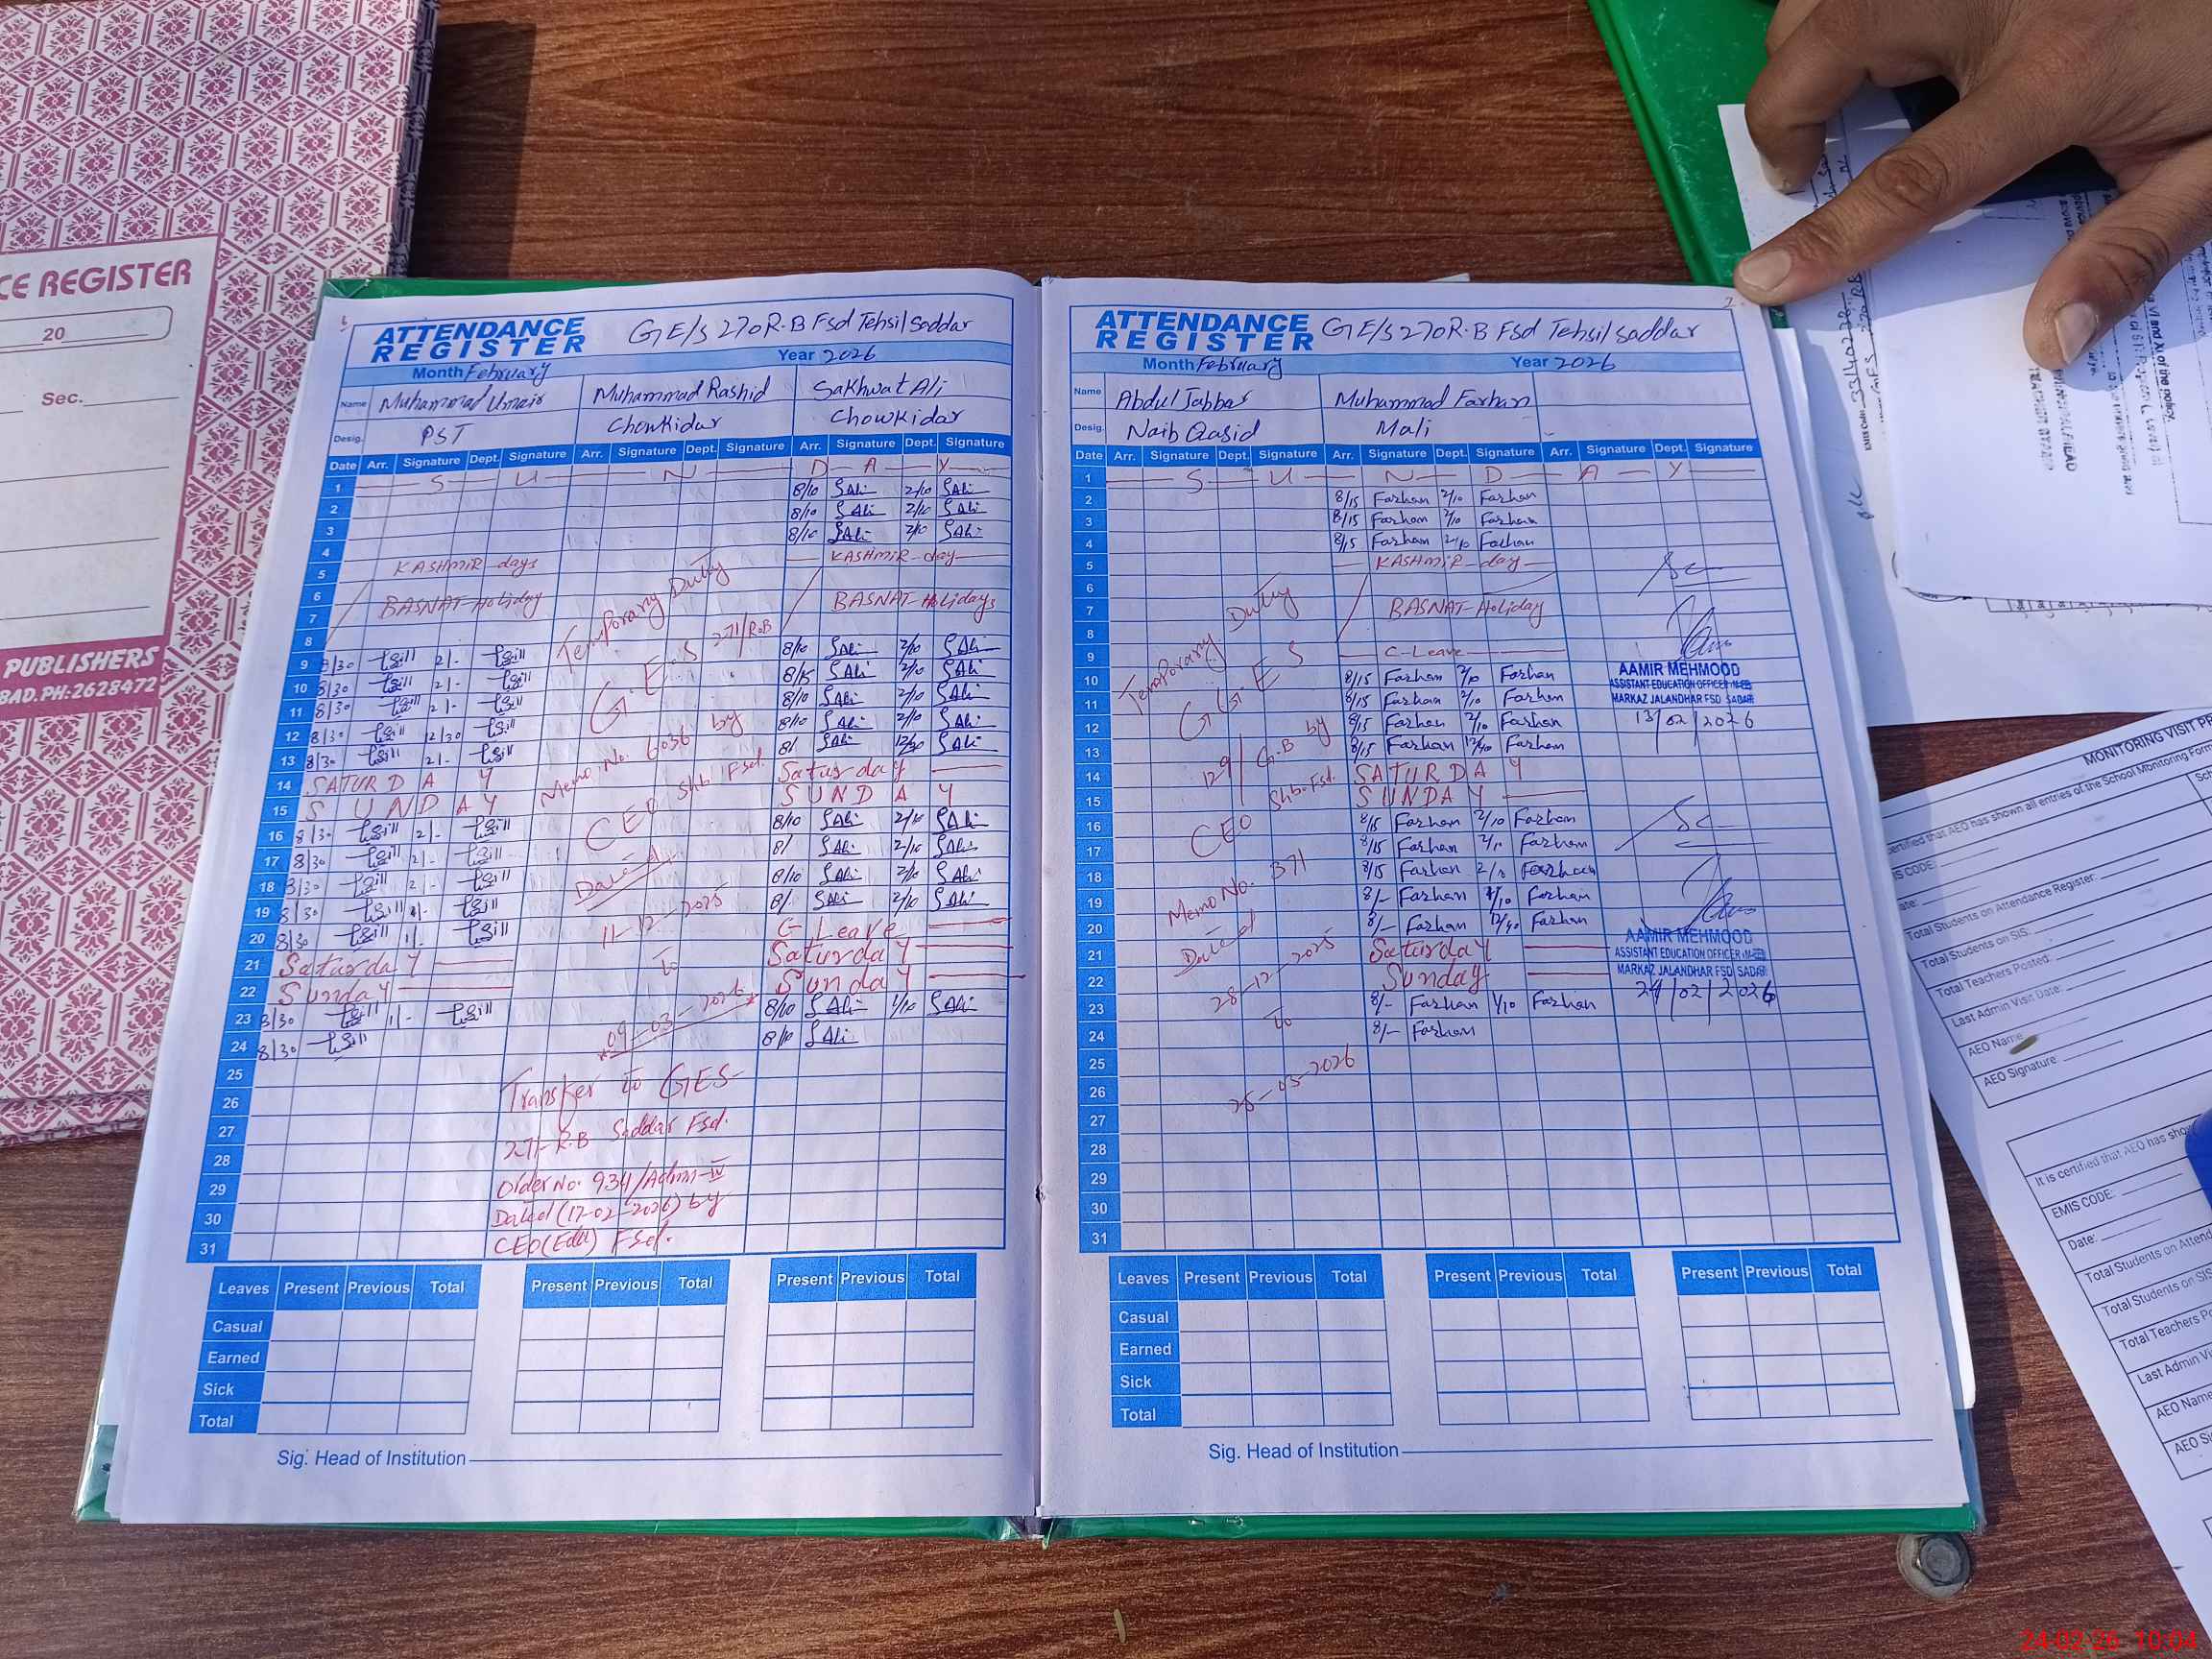 CE REGISTER
20
Sec.
PUBLISHERS
BAD.PH:2628472
ATTENDANCE REGISTER
GE/S 270R.B Fsd Tehsil Saddar
Month February Year 2026
Name Muhammad Umair Muhammad Rashid Sakhwat Ali
Desig. PST Chowkidar Chowkidar
Date Arr. Signature Dept. Signature Arr. Signature Dept. Signature Arr. Signature Dept. Signature
1 S U N D A Y
2 8/10 SAli 2/10 SAli
3 8/10 SAli 2/10 SAli
4 8/10 SAli 2/10 SAli
5 KASHMIR days KASHMIR day
6
7 BASNAT Holiday BASNAT Holidays
8
9 8/30 2/- 8/10 SAli 2/10 SAli
10 8/30 2/- 8/15 SAli 2/10 SAli
11 8/30 2/- 8/10 SAli 2/10 SAli
12 8/30 12/30 8/10 SAli 2/10 SAli
13 8/30 2/- 8/ SAli 12/30 SAli
14 SATURDAY Saturday
15 SUNDAY SUNDAY
16 8/30 2/- 8/10 SAli 2/10 SAli
17 8/30 2/- 8/ SAli 2/10 SAli
18 8/30 2/- 8/10 SAli 2/10 SAli
19 8/30 8/- SAli 2/10 SAli
20 8/30 1/- C Leave
21 Saturday Saturday
22 Sunday Sunday
23 8/30 1/- 8/10 SAli 1/10 SAli
24 8/30 8/10 SAli
25
26
27
28
29
30
31
Temporary Duty
G.E.S 271/R.B
Memo No. 6036 by
CEO Shb. Fsd.
Dated
11-12-2025
to
09-03-2026
Transfer to GES
271-R.B Saddar Fsd.
Order No. 934/Admn-IV
Dated (17-02-2026) by
CEO (Edu) Fsd.
Leaves Present Previous Total Present Previous Total Present Previous Total
Casual
Earned
Sick
Total
Sig. Head of Institution
ATTENDANCE REGISTER
GE/S 270R.B Fsd Tehsil Saddar
Month February Year 2026
Name Abdul Jabbar Muhammad Farhan
Desig. Naib Qasid Mali
Date Arr. Signature Dept. Signature Arr. Signature Dept. Signature Arr. Signature Dept. Signature
1 S U N D A Y
2 8/15 Farhan 2/10 Farhan
3 8/15 Farhan 2/10 Farhan
4 8/15 Farhan 2/10 Farhan
5 KASHMIR day
6
7 BASNAT Holiday
8
9 C-Leave
10 8/15 Farhan 2/10 Farhan
11 8/15 Farhan 2/10 Farhan
12 8/15 Farhan 2/10 Farhan
13 8/15 Farhan Farhan
14 SATURDAY
15 SUNDAY
16 8/15 Farhan 2/10 Farhan
17 8/15 Farhan Farhan
18 8/15 Farhan Farhan
19 8/- Farhan Farhan
20 8/- Farhan Farhan
21 Saturday
22 Sunday
23 8/- Farhan 1/10 Farhan
24 8/- Farhan
25
26
27
28
29
30
31
Temporary Duty
G.E.S
129/G.B by
CEO Shb. Fsd.
Memo No. 371
Dated
28-12-2025
to
AAMIR MEHMOOD
ASSISTANT EDUCATION OFFICER
MARKAZ JALANDHAR FSD SADAR
13/02/2026
AAMIR MEHMOOD
ASSISTANT EDUCATION OFFICER
MARKAZ JALANDHAR FSD SADAR
24/02/2026
Leaves Present Previous Total Present Previous Total Present Previous Total
Casual
Earned
Sick
Total
Sig. Head of Institution
VI and XI of the policy.
MONITORING VISIT
ertified that AEO has shown all entries of the School Monitoring
IS CODE:
Total Students on Attendance Register:
Total Students on SIS:
Total Teachers Posted:
Last Admin Visit Date:
AEO Name
AEO Signature:
It is certified that AEO has
EMIS CODE:
Date:
Total Students on
Total Students on SIS
Total Teachers
Last Admin
AEO Name
24-02-26 10:04